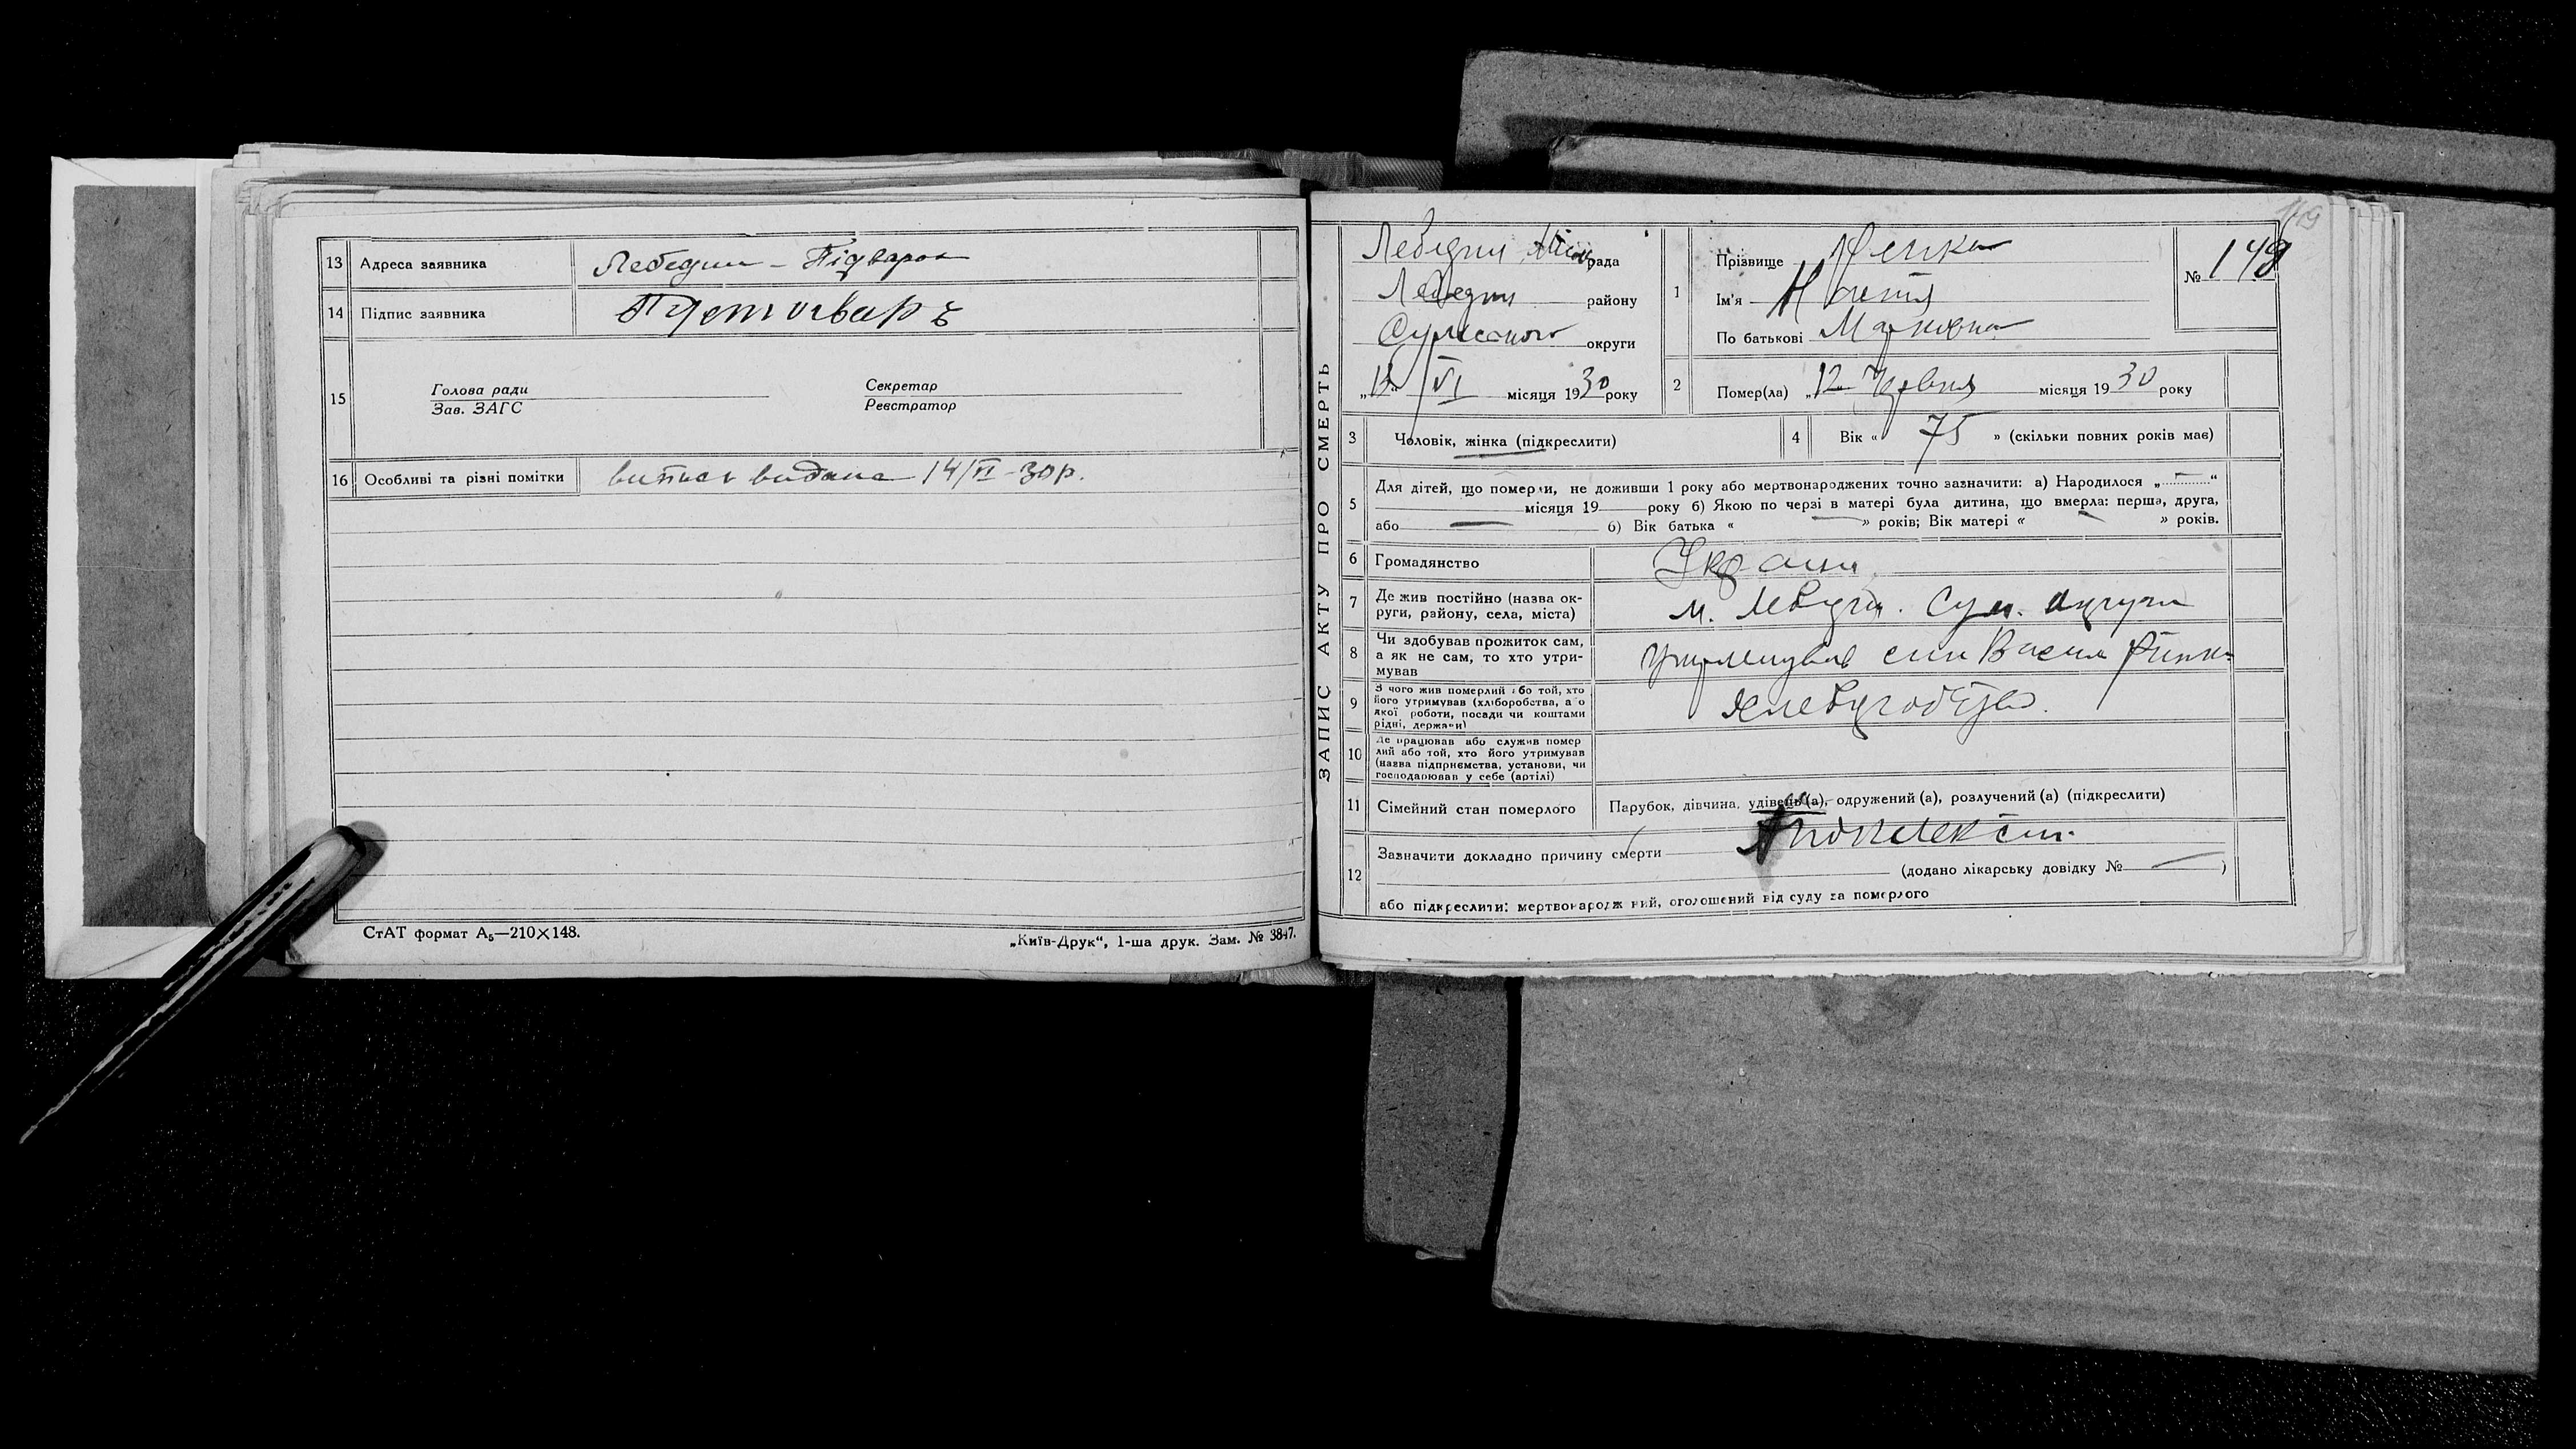 13 Адреса заявника Лебедин - Підварок
14 Підпис заявника Пустоваръ
15 Голова ради Секретар
Зав. ЗАГС Реєстратор
16 Особливі та різні помітки випись видана 14/VI-30р.
СтАТ формат А5—210×148.
„Київ-Друк“, 1-ша друк. Зам. № 3847.
119
ЗАПИС АКТУ ПРО СМЕРТЬ
Лебедин рада
Лебедин району
Сумського округи
VI місяця 1930 року
1 Прізвище
Ім'я Настя
По батькові Марковна
№ 149
2 Помер(ла) „12 Червня місяця 1930 року
3 Чоловік, жінка (підкреслити)
4 Вік « 75 » (скільки повних років має)
5 Для дітей, що померли, не доживши 1 року або мертвонароджених точно зазначити: а) Народилося „ “
місяця 19 року б) Якою по черзі в матері була дитина, що вмерла: перша, друга,
або б) Вік батька « » років; Вік матері « » років.
6 Громадянство Україн.
7 Де жив постійно (назва ок-
руги, району, села, міста) м. Лебедин. Сум. округи
8 Чи здобував прожиток сам,
а як не сам, то хто утри-
мував син Василь
9 З чого жив померлий або той, хто
його утримував (хліборобства, або
якої роботи, посади чи коштами
рідні, держави)
10 Де працював або служив помер
лий або той, хто його утримував
(назва підприємства, установи, чи
господарював у себе (артілі)
11 Сімейний стан померлого Парубок, дівчина, удівець(а), одружений (а), розлучений (а) (підкреслити)
12 Зазначити докладно причину смерти
(додано лікарську довідку № )
або підкреслити: мертвонароджений, оголошений від суду за померлого